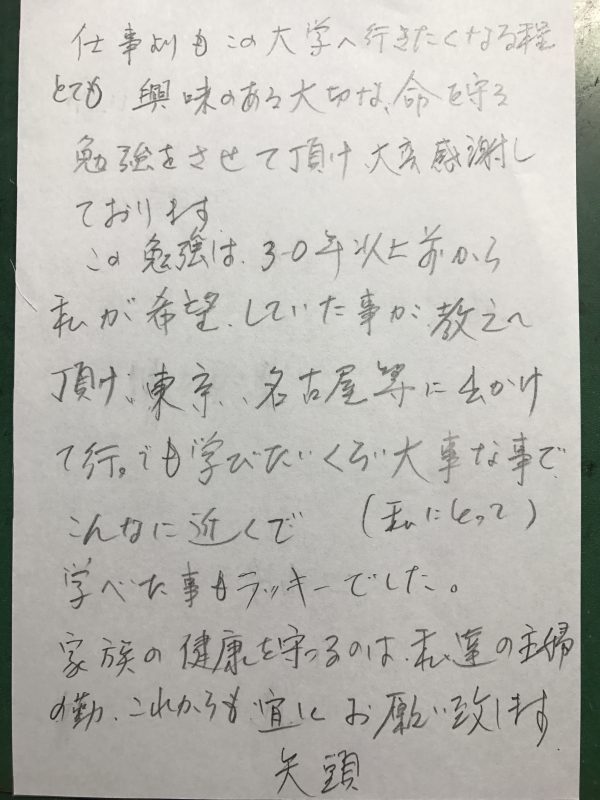 仕事よりもこの大学へ行きたくなる程
とても興味のある大切な、命を守る
勉強をさせて頂け、大変感謝し
ております
この勉強は、30年以上前から
私が希望、していた事が、教えて
頂け、東京、名古屋等に出かけ
て行っても学びたいくらい大事な事で
こんなに近くで (私にとって)
学べた事もラッキーでした。
家族の健康を守つるのは、私達の主婦
の勤、これからも、宜し お願い致します
矢頭